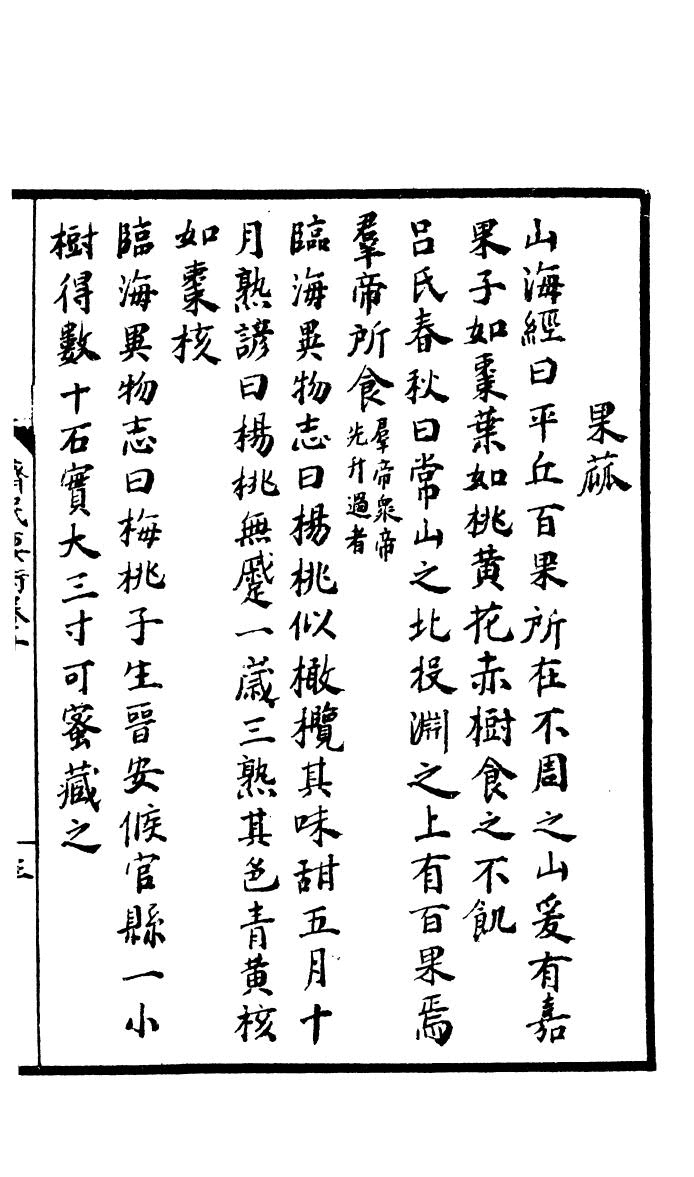 果蓏
山海經曰平丘百果所在不周之山爰有嘉
果子如棗葉如桃黃花赤樹食之不飢
呂氏春秋曰常山之北投淵之上有百果焉
羣帝所食羣帝衆帝先升遐者
臨海異物志曰楊桃似橄欖其味甜五月十
月熟諺曰楊桃無蹙一歲三熟其色青黃核
如棗核
臨海異物志曰梅桃子生晉安候官縣一小
樹得數十石實大三寸可蜜藏之
齊民要術卷十
三